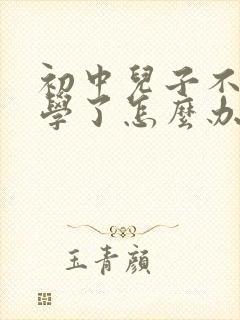 初中兒子不
學了怎麼办
玉青顔